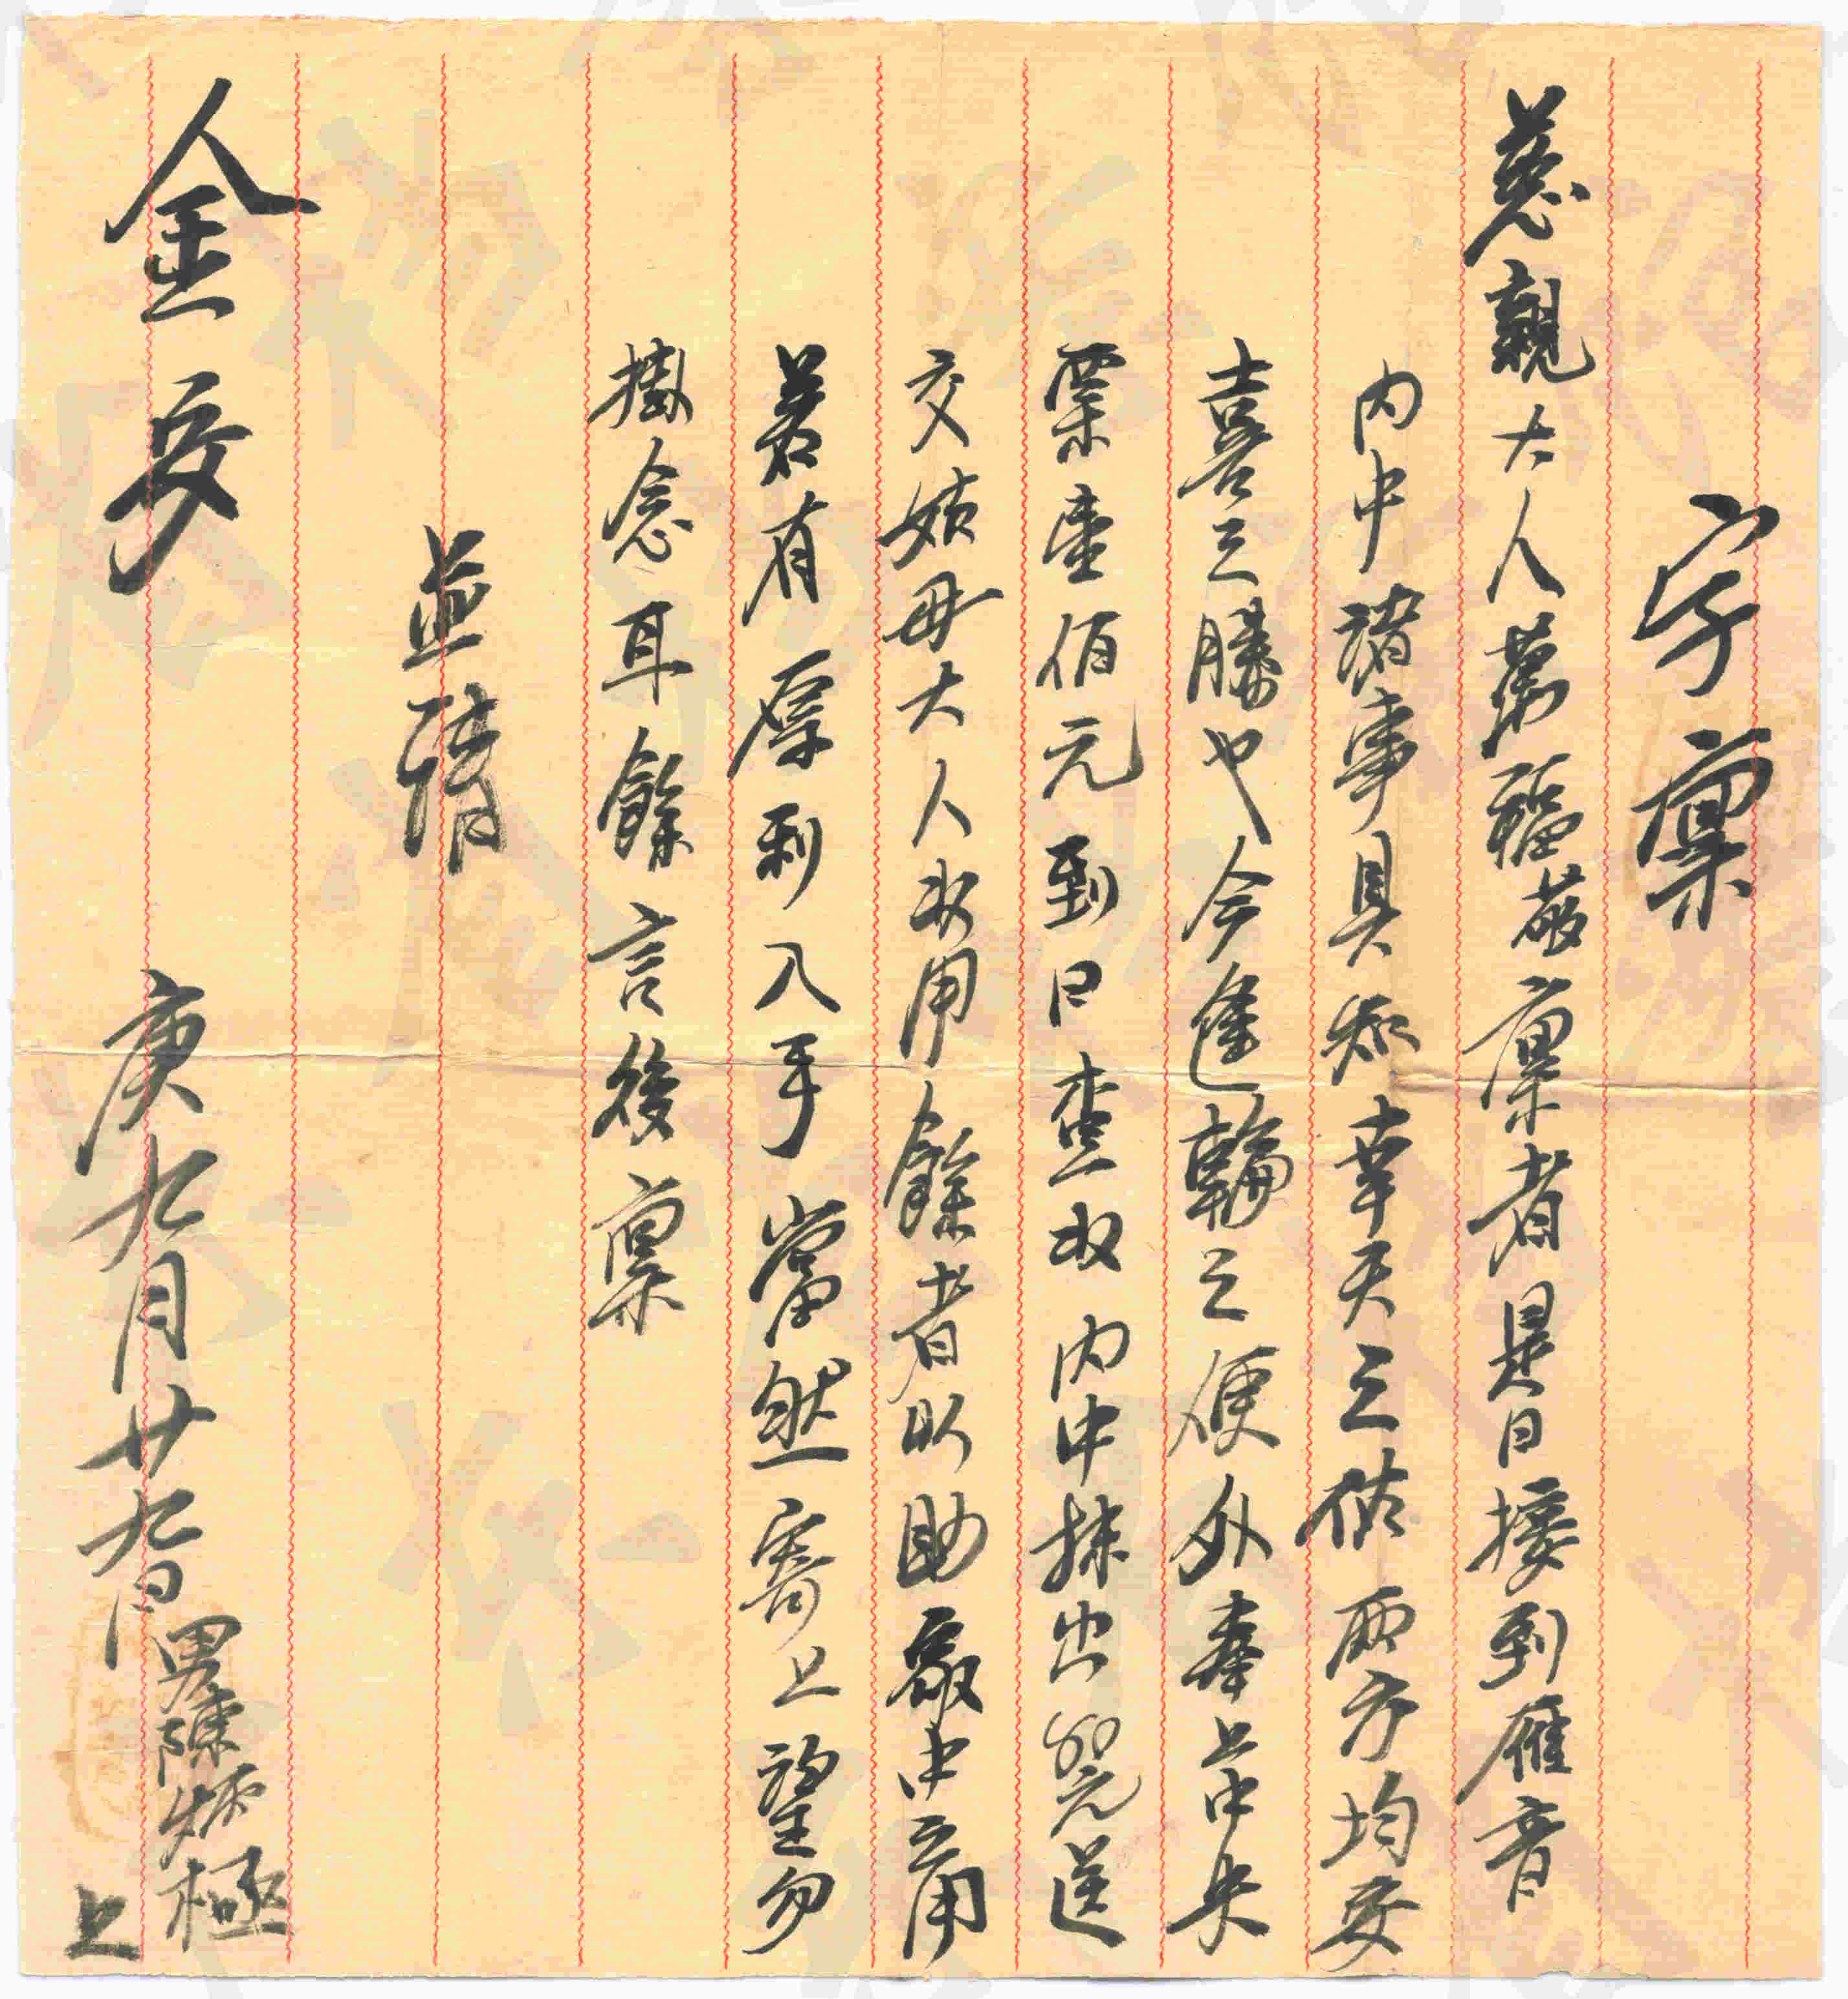 字稟
慈親大人萬福敬稟者是日接到雁音
內中諸事具知幸天之佑兩方均安
喜之勝也今逢輪之便外奉上中央
票壹佰元到日查收內中抹出 元送
交姑母大人收用餘者以助家中之用
若有厚利入手當然寄上望勿
掛念耳餘言後稟
並請
金安
庚九月廿九日
男陳炳極
上